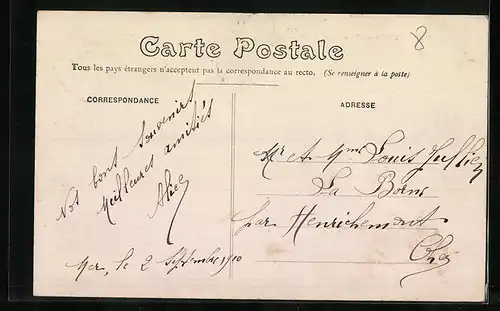 8
Carte Postale
Tous les pays étrangers n'acceptent pas la correspondance au recto. (Se renseigner à la poste)
CORRESPONDANCE
ADRESSE
Nos bons souvenirs
Meilleures amitiés
Alice
Mer, le 2 Septembre 1910
Mr et Mme Louis Jullien
La Borne
par Henrichemont
Cher